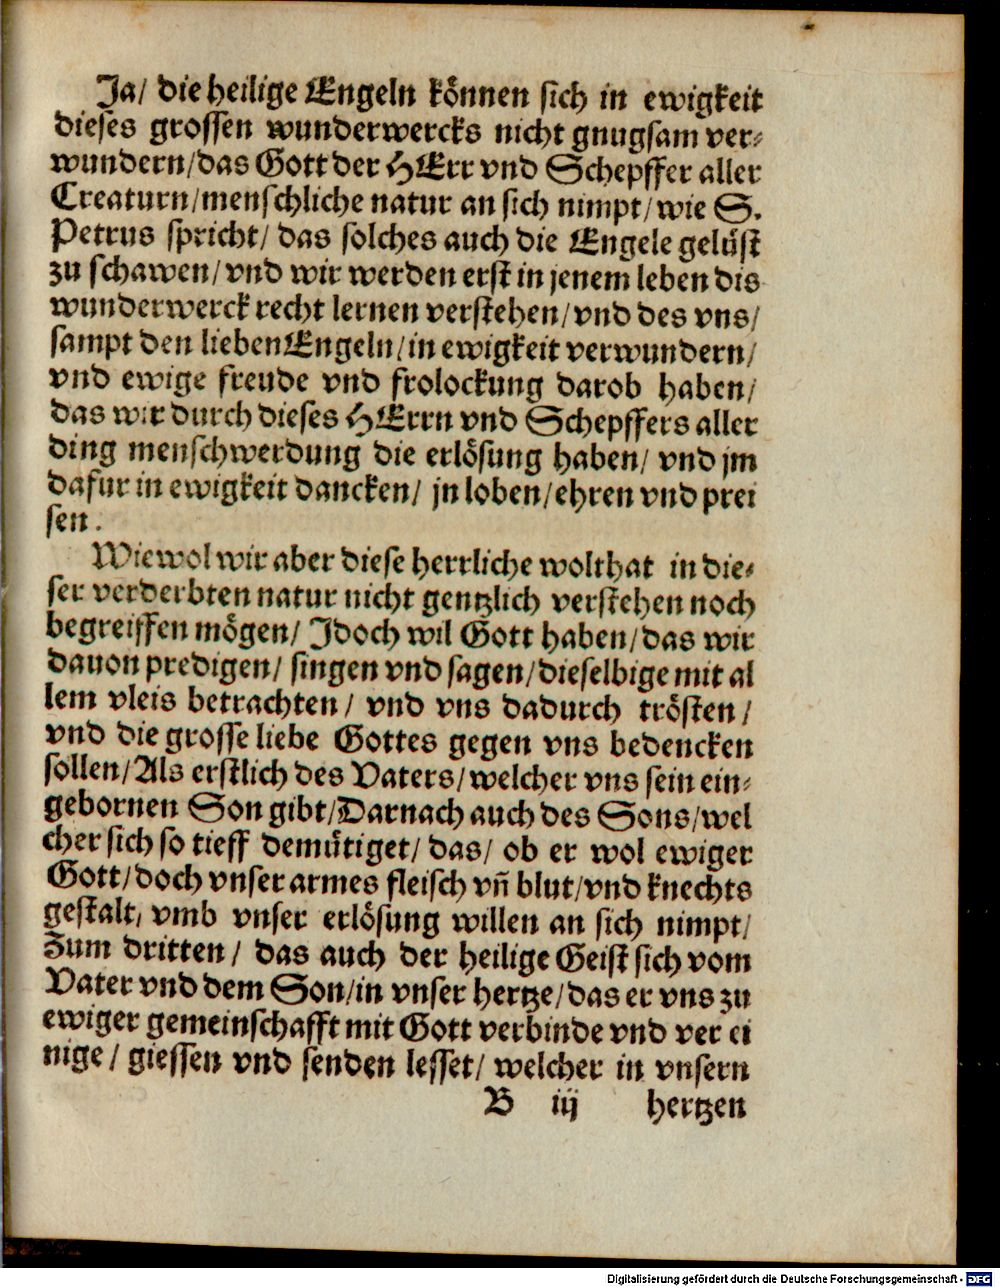 Ja/ die heilige Engeln können sich in ewigkeit
dieses grossen wunderwercks nicht gnugsam ver-
wundern/das Gott der HErr vnd Schepffer aller
Creaturn/menschliche natur an sich nimpt/wie S.
Petrus spricht/ das solches auch die Engele gelüst
zu schawen/vnd wir werden erst in jenem leben dis
wunderwerck recht lernen verstehen/vnd des vns/
sampt den lieben Engeln/in ewigkeit verwundern/
vnd ewige freude vnd frolockung darob haben/
das wir durch dieses HErrn vnd Schepffers aller
ding menschwerdung die erlösung haben/ vnd jm
dafur in ewigkeit dancken/ jn loben/ehren vnd prei
sen.
Wiewol wir aber diese herrliche wolthat in die-
ser verderbten natur nicht gentzlich verstehen noch
begreiffen mögen/ Jdoch wil Gott haben/das wir
dauon predigen/ singen vnd sagen/dieselbige mit al
lem vleis betrachten/ vnd vns dadurch trösten/
vnd die grosse liebe Gottes gegen vns bedencken
sollen/Als erstlich des Vaters/welcher vns sein ein-
gebornen Son gibt/Darnach auch des Sons/wel
cher sich so tieff demütiget/ das/ ob er wol ewiger
Gott/doch vnser armes fleisch vñ blut/vnd knechts
gestalt, vmb vnser erlösung willen an sich nimpt/
Zum dritten/ das auch der heilige Geist sich vom
Vater vnd dem Son/in vnser hertze/das er vns zu
ewiger gemeinschafft mit Gott verbinde vnd ver ei
nige/ giessen vnd senden lesset/ welcher in vnsern
B iij hertzen
Digitalisierung gefördert durch die Deutsche Forschungsgemeinschaft - DFG